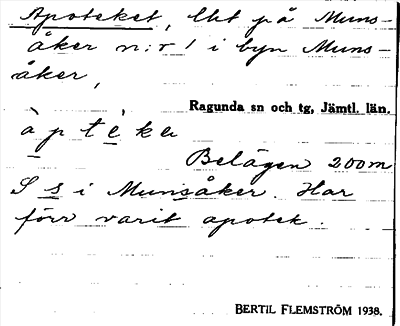 Apoteket, lht på Muns-
åker n:r 1 i byn Muns-
åker,
Ragunda sn och tg, Jämtl. län.
à p t è ke
Belägen 200 m
S s i Munsåker. Har
förr varit apotek.
BERTIL FLEMSTRÖM 1938.